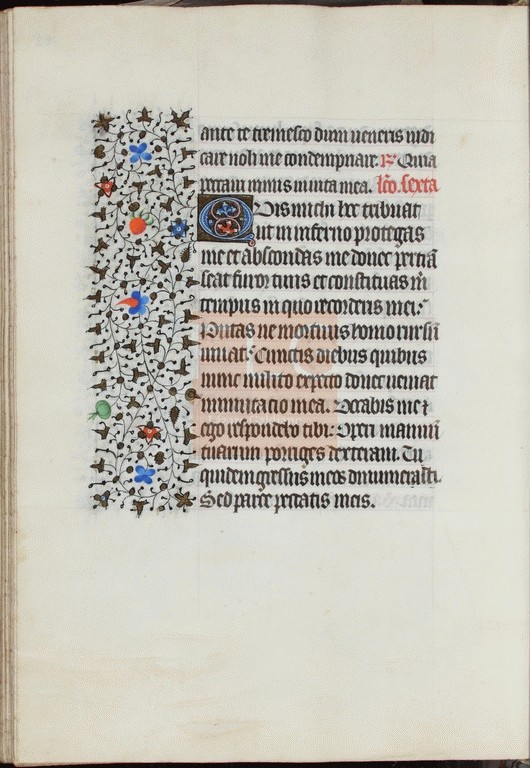 ante te tremesco dum ueneris iudi
care noli me condempnare. R Quia
peccaui nimis in uita mea. lco. sexta
Quis michi hec tribuat
ut in inferno protegas
me et abscondas me donec pertra
seat furor tuus et constituas m
tempus in quo recorderis mei.
Putas ne mortuus homo rursu
uiuat. Cunctis diebus quibus
nunc milito expecto donec ueniat
inmutatio mea. Uocabis me et
ego respondebo tibi. Operi manuu
tuarum porriges dexteram. Tu
quidem gressus meos dinumerasti.
Sed parce peccatis meis.